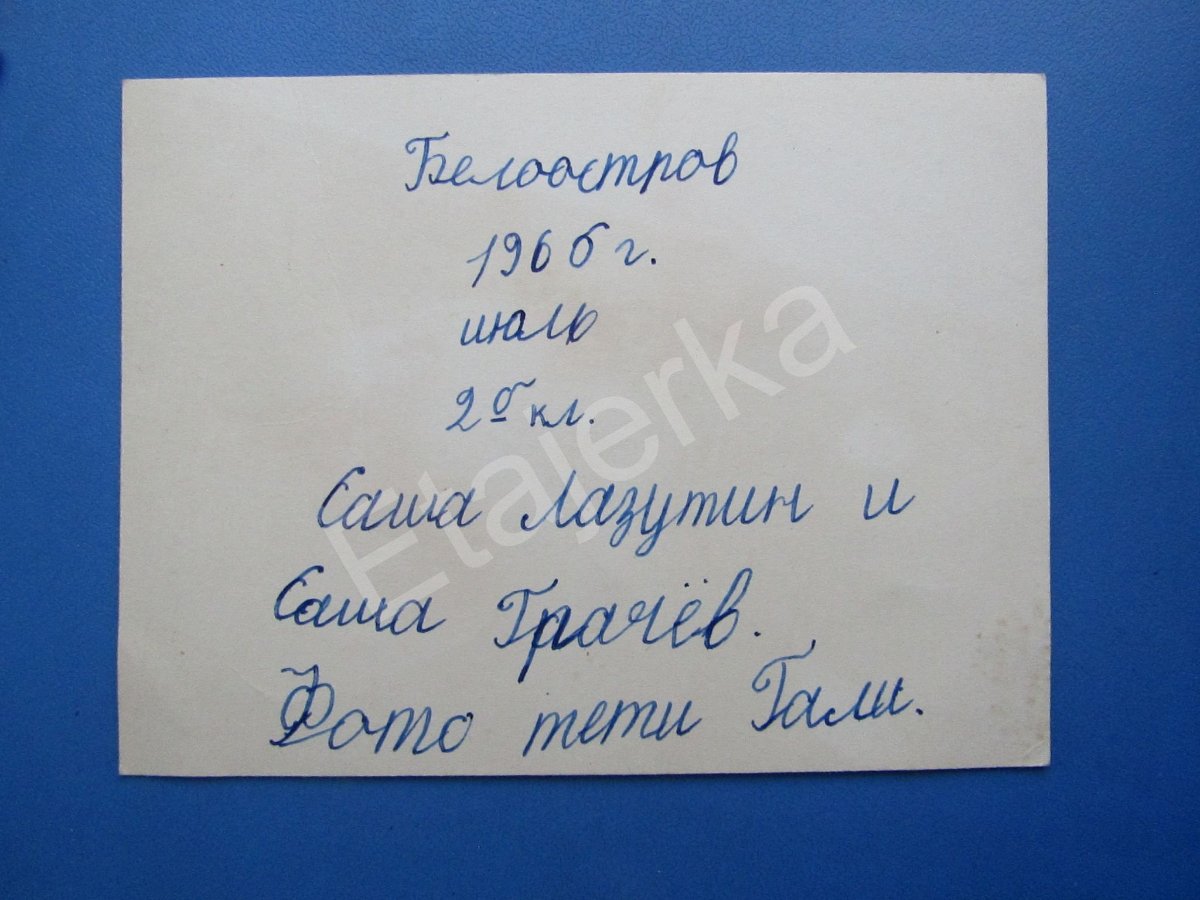 Белоостров
1966 г.
июль
2 б кл.
Саша Лазутин и
Саша Грачёв.
Фото тети Гали.
Etajerka